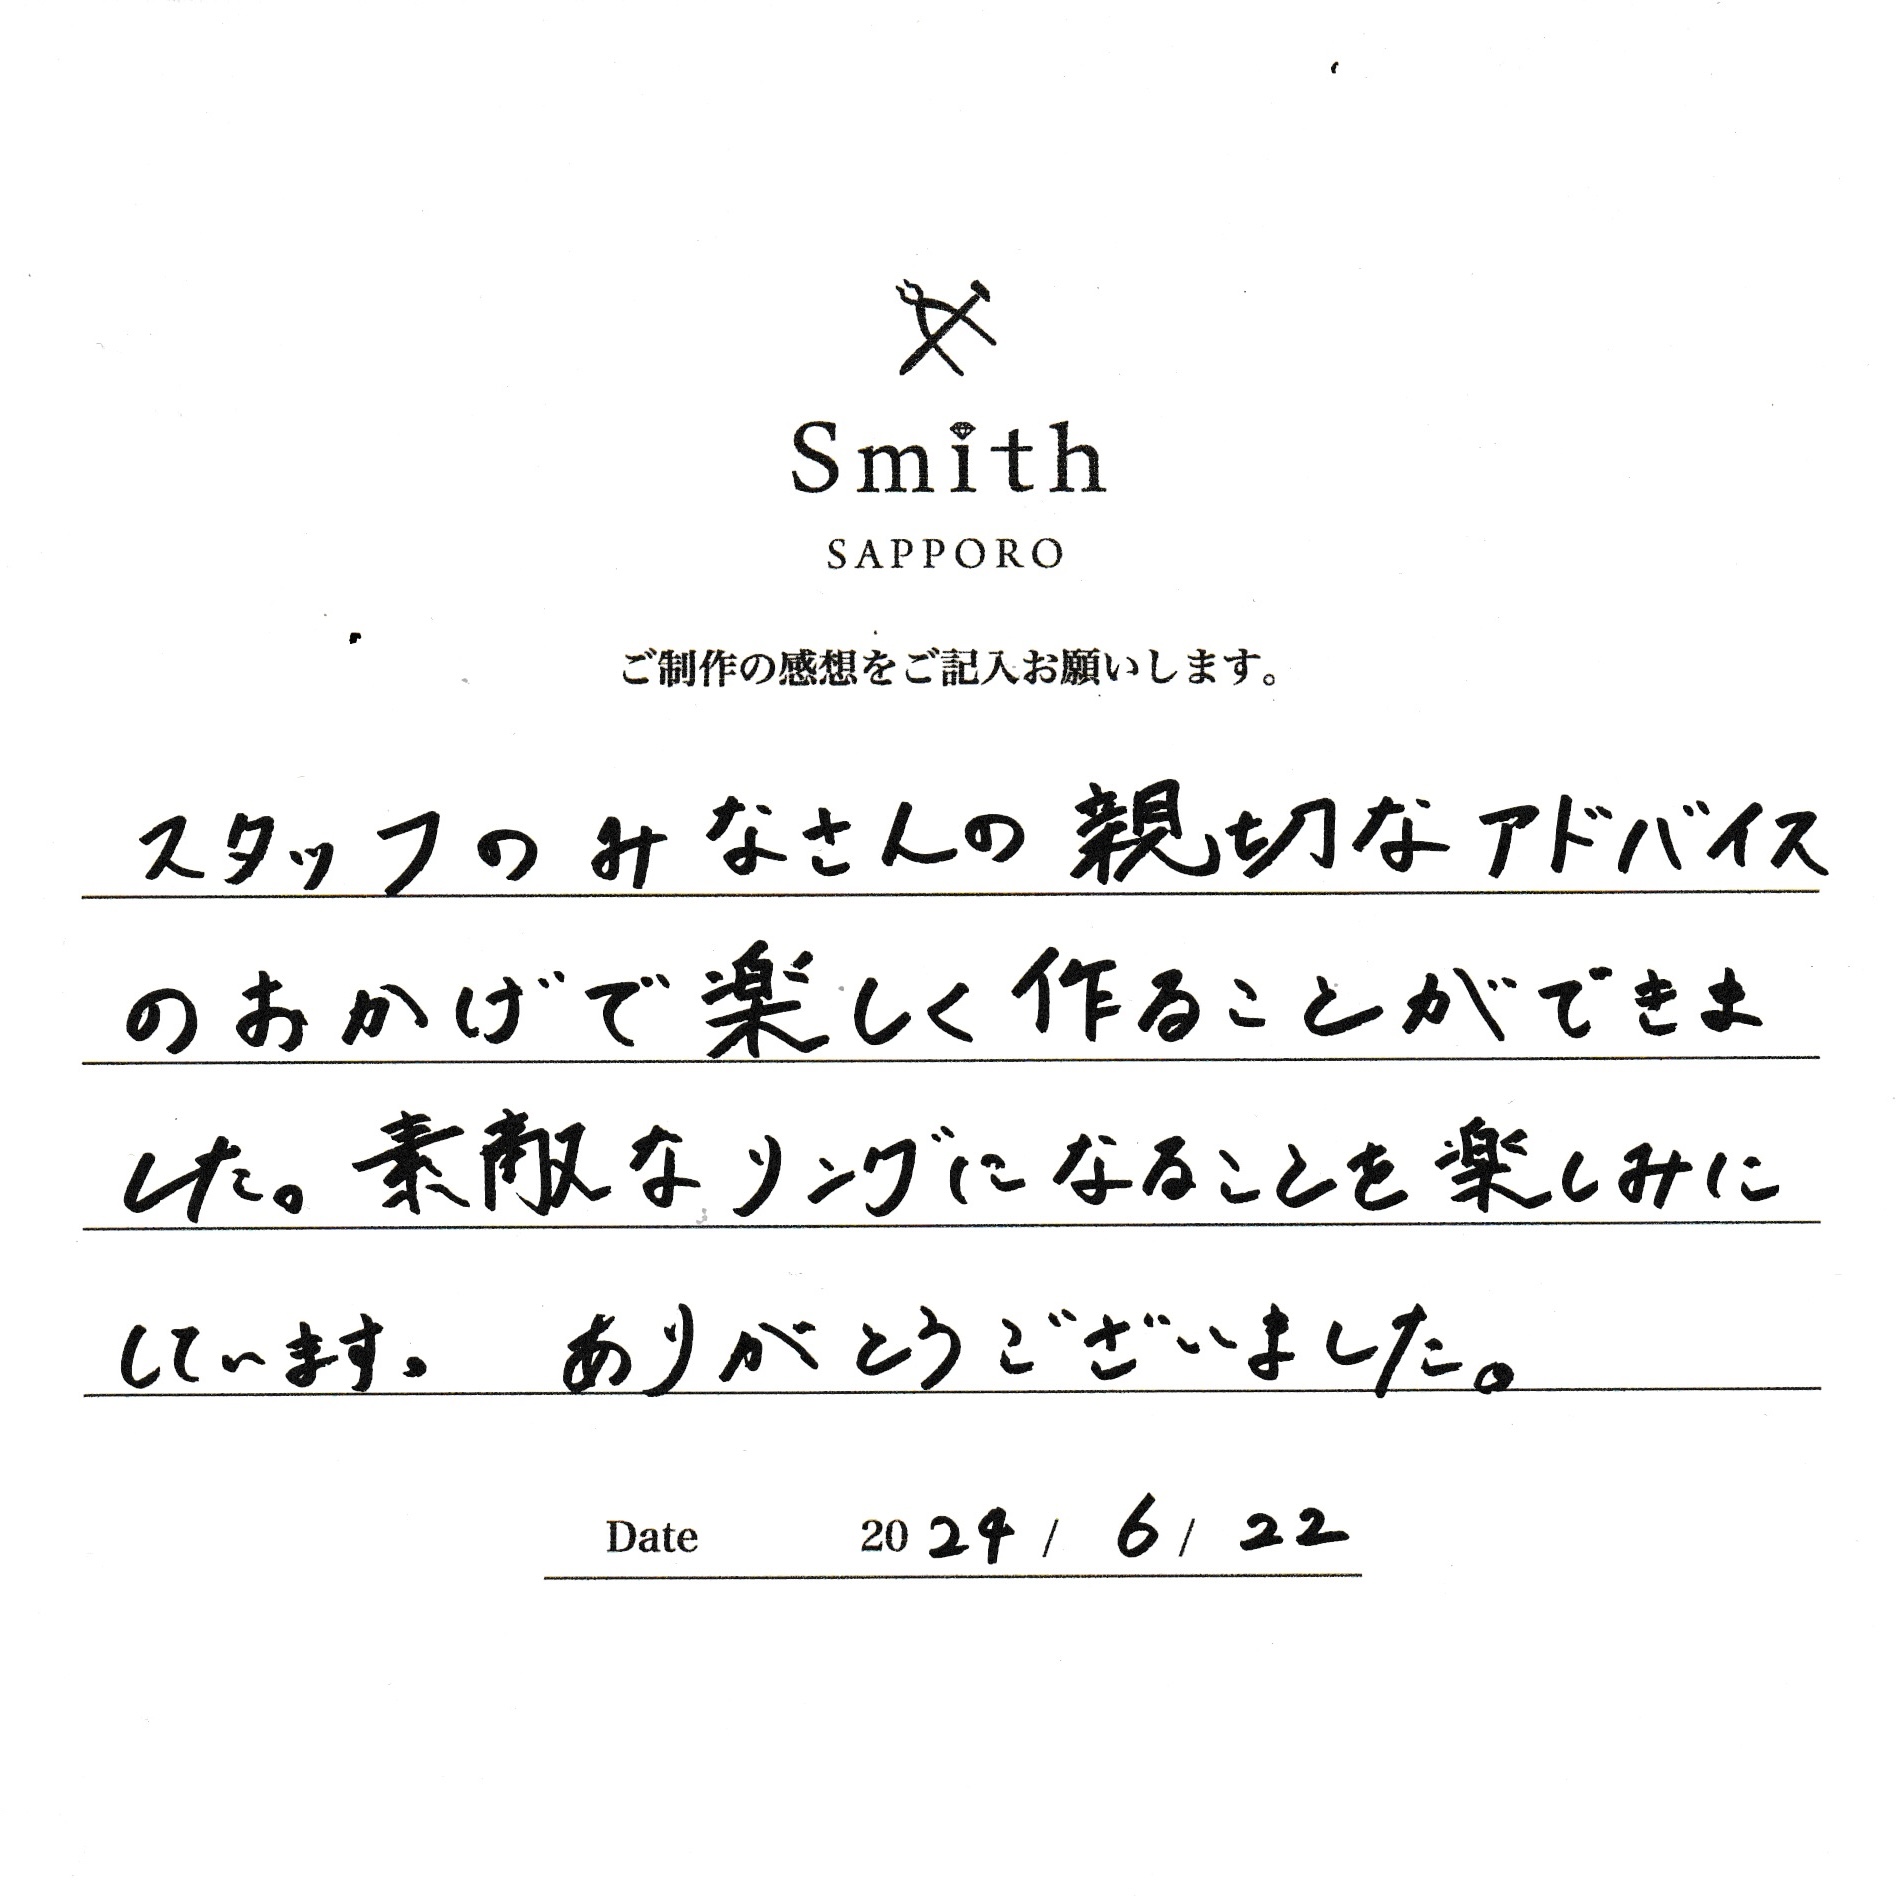 Smith
SAPPORO
ご制作の感想をご記入お願いします。
スタッフのみなさんの親切なアドバイス
のおかげで楽しく作ることができま
した。素敵なリングになることを楽しみに
しています。 ありがとうございました。
Date 2024 / 6 / 22